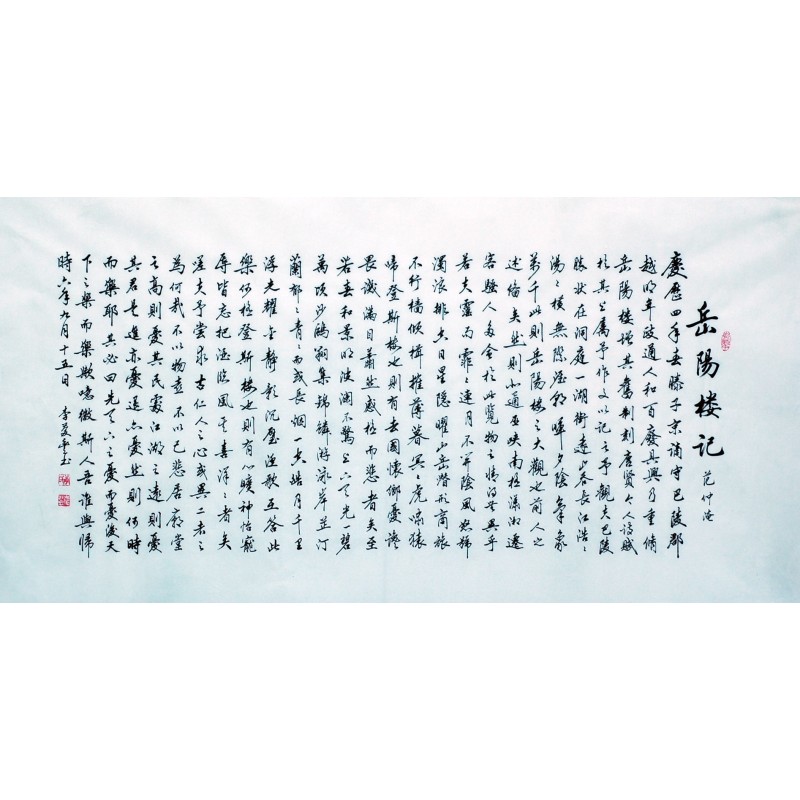 岳陽楼记
范仲淹
慶歷四年春滕子京謫守巴陵郡
越明年政通人和百廢具興乃重脩
岳陽樓增其舊制刻唐賢今人詩賦
於其上屬予作文以記之予觀夫巴陵
勝狀在洞庭一湖銜遠山吞長江浩浩
湯湯橫無際涯朝暉夕陰氣象
萬千此則岳陽樓之大觀也前人之
述備矣然則北通巫峽南極瀟湘遷
客騷人多會於此覽物之情得無異乎
若夫霪雨霏霏連月不開陰風怒號
濁浪排空日星隱曜山岳潛形商旅
不行檣傾楫摧薄暮冥冥虎嘯猿
啼登斯樓也則有去國懷鄉憂讒
畏譏滿目蕭然感極而悲者矣至
若春和景明波瀾不驚上下天光一碧
萬頃沙鷗翔集錦鱗游泳岸芷汀
蘭郁郁青青而或長烟一空皓月千里
浮光耀金靜影沉璧漁歌互答此
樂何極登斯樓也則有心曠神怡寵
辱皆忘把酒臨風其喜洋洋者矣
嗟夫予嘗求古仁人之心或異二者之
為何哉不以物喜不以己悲居廟堂
之高則憂其民處江湖之遠則憂
其君是進亦憂退亦憂然則何時
而樂耶其必曰先天下之憂而憂後天
下之樂而樂歟噫微斯人吾誰與歸
時六年九月十五日 李